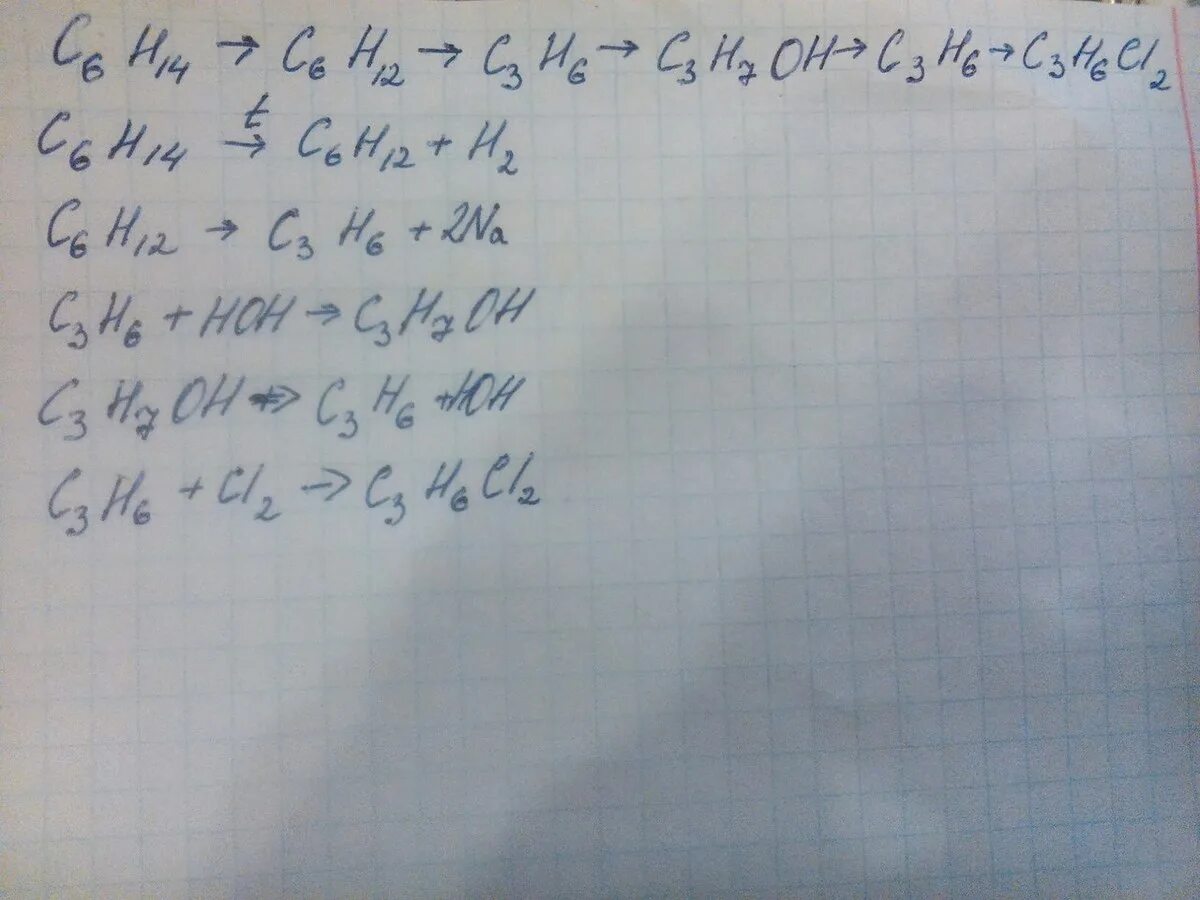 C₆H₁₄ → C₆H₁₂ → C₃H₆ → C₃H₇OH → C₃H₆ → C₃H₆Cl₂
C₆H₁₄ t→ C₆H₁₂ + H₂
C₆H₁₂ → C₃H₆ + 2Na
C₃H₆ + HOH → C₃H₇OH
C₃H₇OH → C₃H₆ + HOH
C₃H₆ + Cl₂ → C₃H₆Cl₂